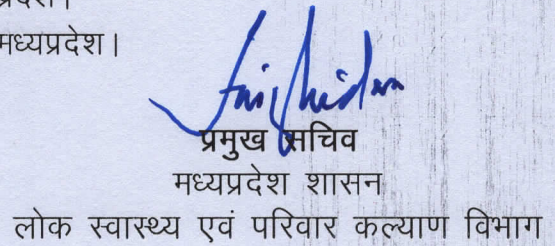 मध्यप्रदेश।
प्रमुख सचिव
मध्यप्रदेश शासन
लोक स्वास्थ्य एवं परिवार कल्याण विभाग